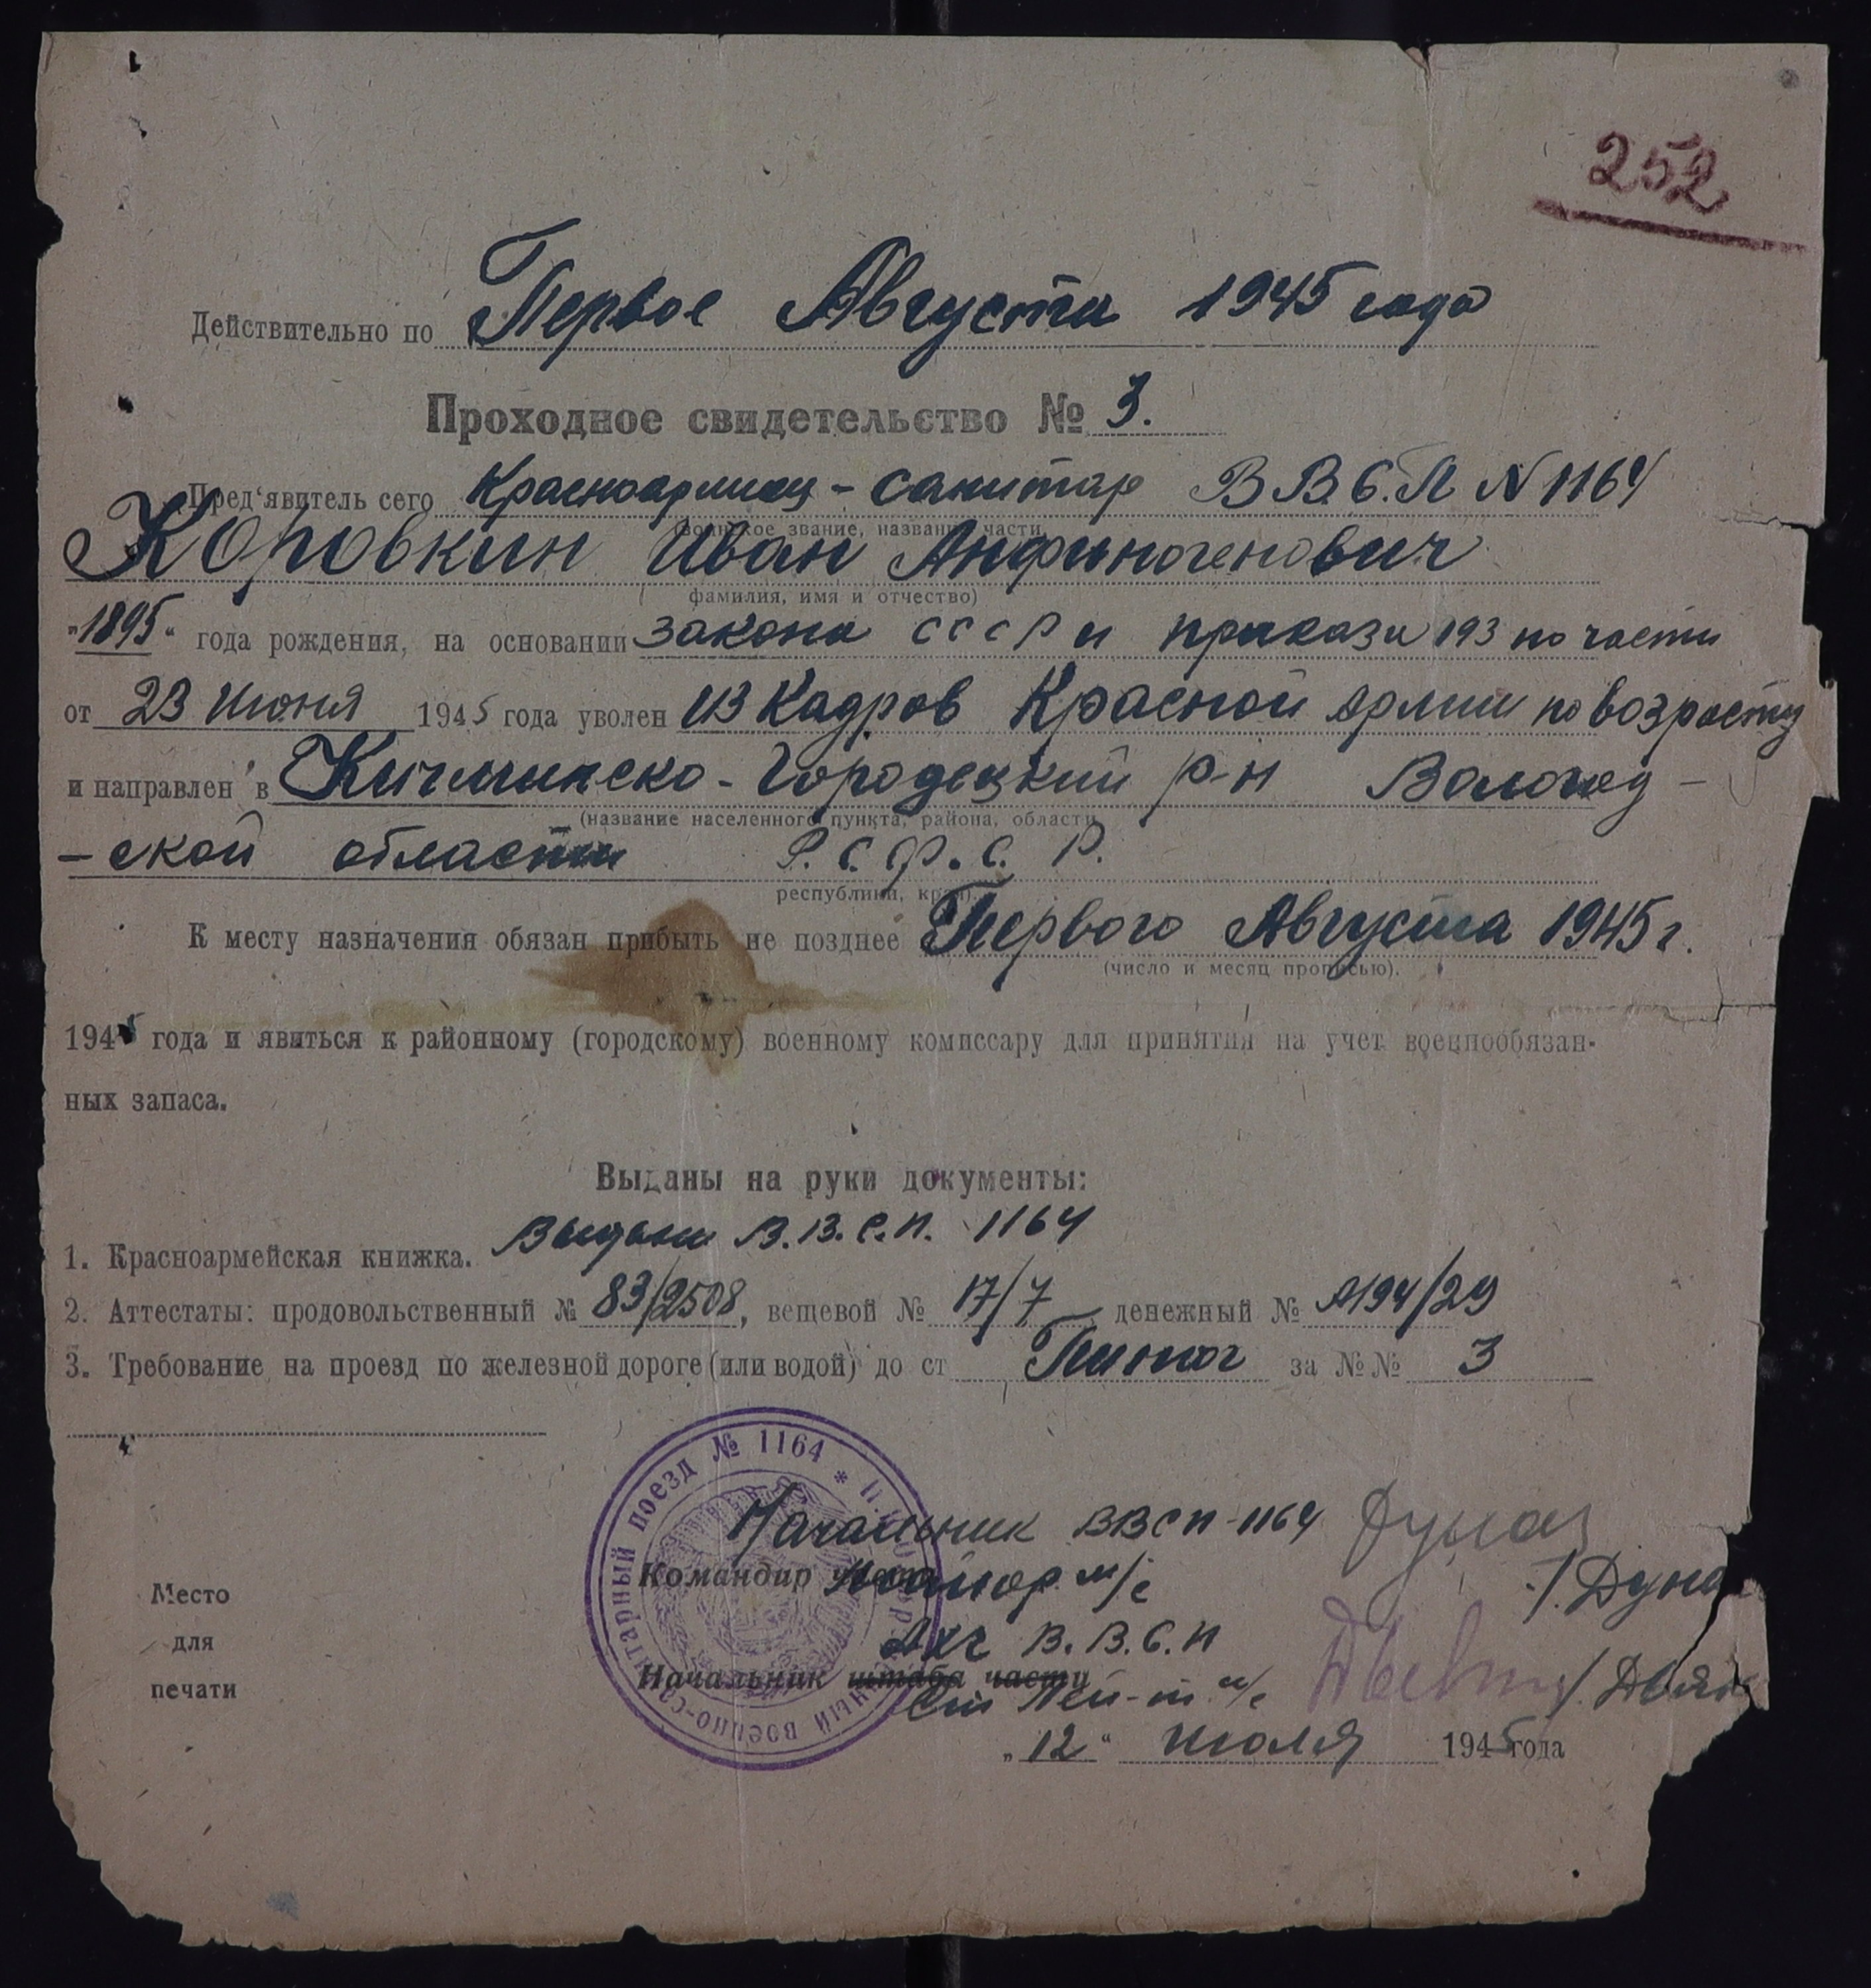 252
Действительно по Первое Августа 1945 года
Проходное свидетельство № 3.
Пред'явитель сего Красноармеец - санитар В В С.П N 1164
(воинское звание, название части,
Коровкин Иван Анфиногенович
фамилия, имя и отчество)
"1895" года рождения, на основании закона СССР и приказа 193 по части
от 23 Июня 1945 года уволен из Кадров Красной Армии по возрасту
и направлен в Кичменско - Городецкий р-н Вологод -
(название населенного пункта, района, области,
- ской области Р.С.Ф.С.Р.
республики, края).
К месту назначения обязан прибыть не позднее Первого Августа 1945 г.
(число и месяц прописью).
1945 года и явиться к районному (городскому) военному комиссару для принятия на учет военнообязан-
ных запаса.
Выданы на руки документы:
1. Красноармейская книжка. Выдана В.В.С.П. 1164
2. Аттестаты: продовольственный № 83/2508, вещевой № 17/7 денежный № А194/29
3. Требование на проезд по железной дороге (или водой) до ст Пинюг за №№ 3
поезд № 1164 *
Начальник ВВСП-1164
Командир части Майор м/с /. Дуна
АХЧ В.В.С.П
Начальник штаба части
Ст Лей-т м/с
Место
для
печати
„12“ июля 1945 года